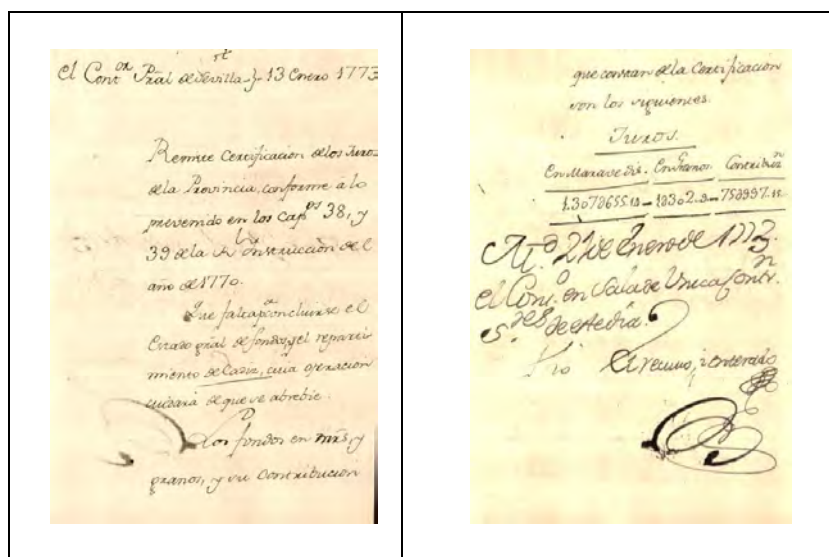 el Cont.or Pral de Sevilla 13 Enero 1773
Remite Certificacion de los Juros
de la Provincia, conforme á lo
prevenido en los Cap.os 38, y
39 de la Rl Ynstruccion del
año de 1770.
Que falta p.a concluirse el
Estado gral de fondos, y el reparti
miento de Cadiz, cuia operacion
cuidará de que se abrebie.
Los fondos en mrs, y
granos, y su Contribucion
que constan de la Certificacion
son los siguientes.
Juros.
En Maravedis. En Granos. Contribu.n
M.d 21 de Enero de 1773.
el Cons.o en Sala de Unica Contr.n
S.res de
el recivo, i enterado